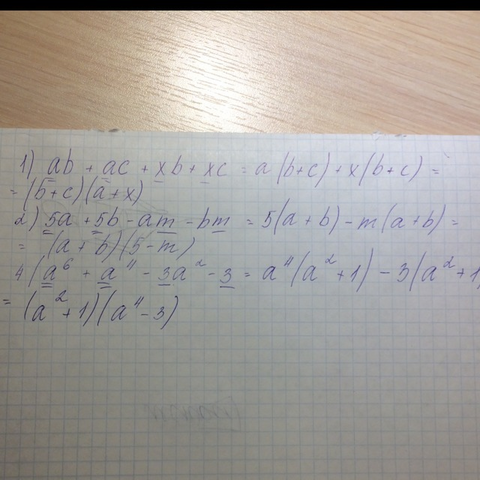 1) ab + ac + xb + xc = a(b+c) + x(b+c) =
= (b+c)(a+x)
2) 5a + 5b - am - bm = 5(a+b) - m(a+b) =
= (a+b)(5-m)
4( a⁶ + a⁴ - 3a² - 3 = a⁴(a² + 1) - 3(a² + 1)
= (a² + 1)(a⁴ - 3)